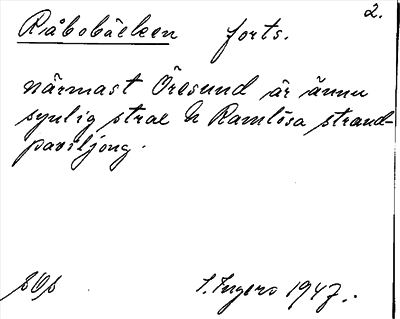 2.
Råbobäcken forts.
närmast Öresund är ännu
synlig strax N Ramlösa strand-
paviljong.
S. Ingers 1947.